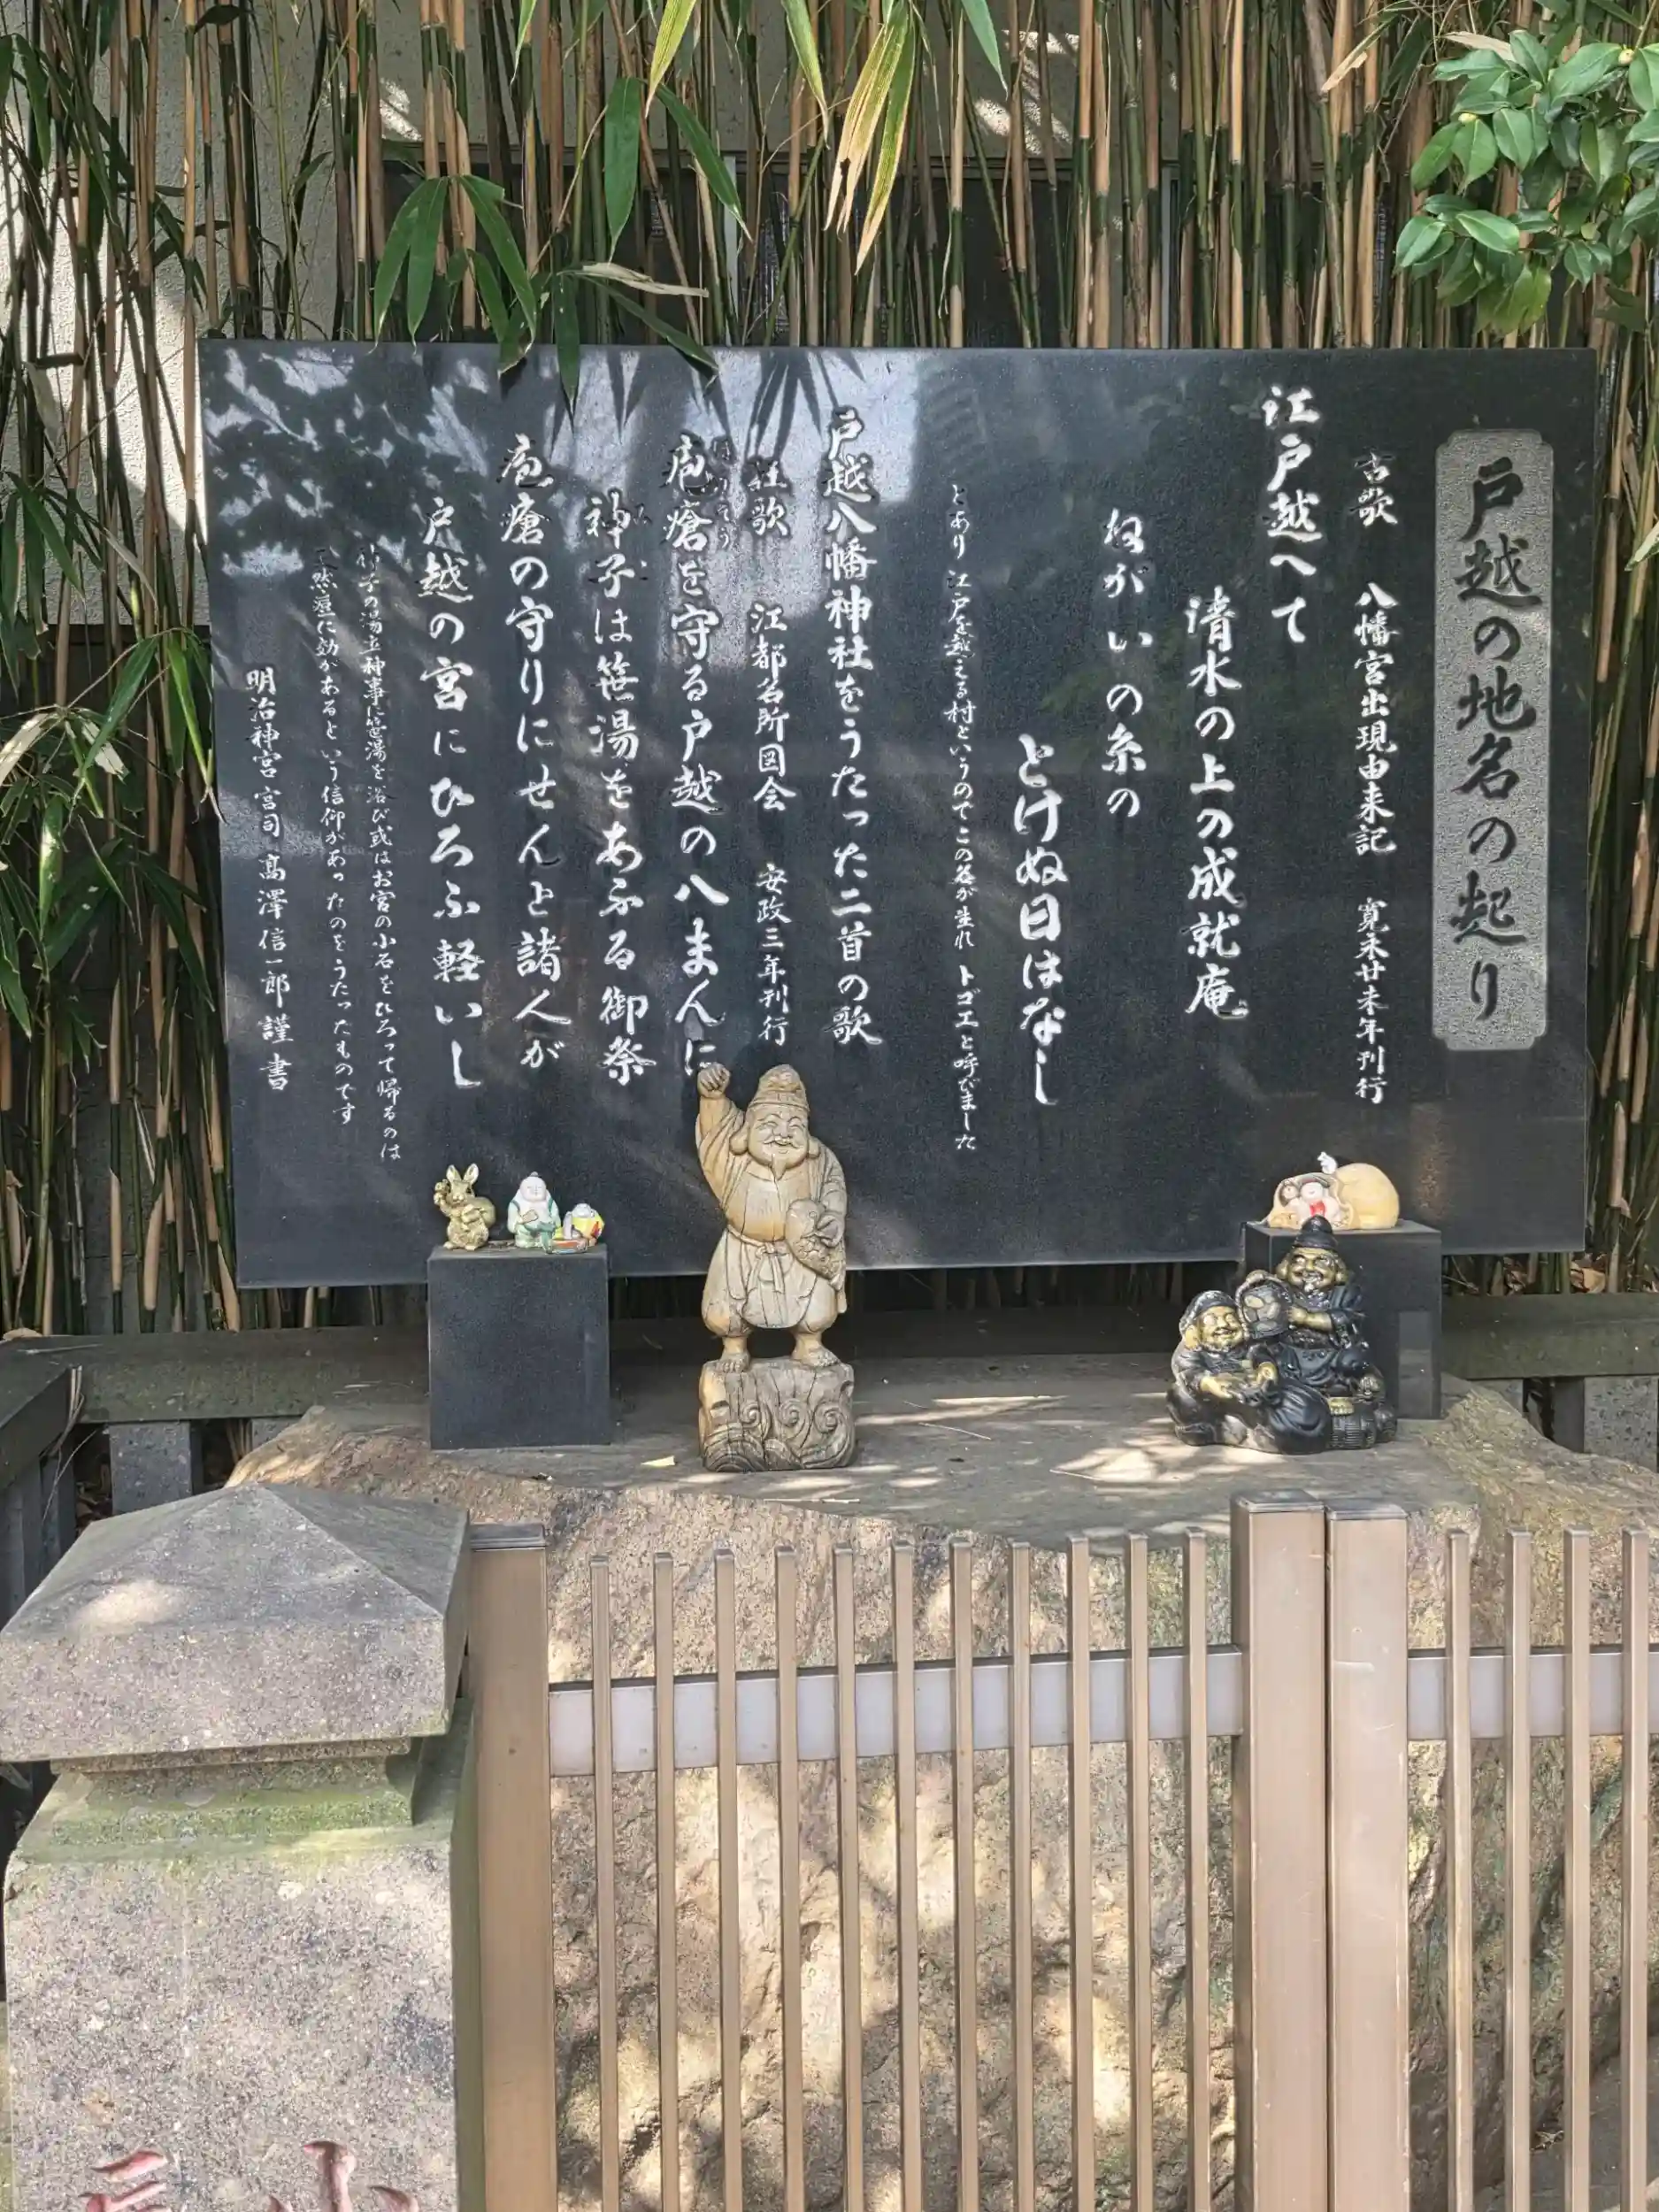 戸越の地名の起り
古歌 八幡宮出現由来記 寛永廿未年刊行
江戸越へて
清水の上の成就庵
ねがいの糸の
とけぬ日はなし
とあり江戸を越える村というのでこの名が生れトゴエと呼びました
戸越八幡神社をうたった二首の歌
狂歌 江都名所図会 安政三年刊行
疱瘡を守る戸越の八まんに
神子は笹湯をあふる御祭
疱瘡の守りにせんと諸人が
戸越の宮にひろふ軽いし
神子の湯立神事に笹湯を浴び或はお宮の小石をひろって帰るのは
天然痘に効があるという信仰があったのをうたったものです
明治神宮宮司 髙澤信一郎 謹書